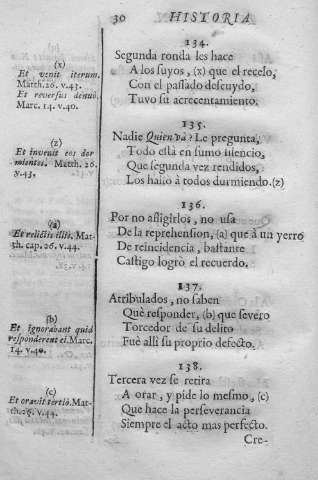 30 HISTORIA
134.
Segunda ronda les hace
A los suyos, (x) que el recelo,
Con el passado descuydo,
Tuvo su acrecentamiento.
(x)
Et venit iterum.
Matth. 26. v. 43.
Et reversus denuò.
Marc. 14. v. 40.
135.
Nadie Quien và? Le pregunta,
Todo està en sumo silencio,
Que segunda vez rendidos,
Los hallò à todos durmiendo. (z)
(z)
Et invenit eos dor
mientes. Matth. 26.
v. 43.
136.
Por no afligirlos, no usa
De la reprehension, (a) que à un yerro
De reincidencia, bastante
Castigo logrò el recuerdo.
(a)
Et relictis illis. Mat-
th. cap. 26. v. 44.
137.
Atribulados, no saben
Què responder, (b) que severo
Torcedor de su delito
Fuè alli su proprio defecto.
(b)
Et ignorabant quid
responderent ei. Marc.
14. v. 40.
138.
Tercera vez se retira
A orar, y pide lo mesmo, (c)
Que hace la perseverancia
Siempre el acto mas perfecto.
(c)
Et oravit tertiò. Mat-
th. 26. v. 44.
Cre-